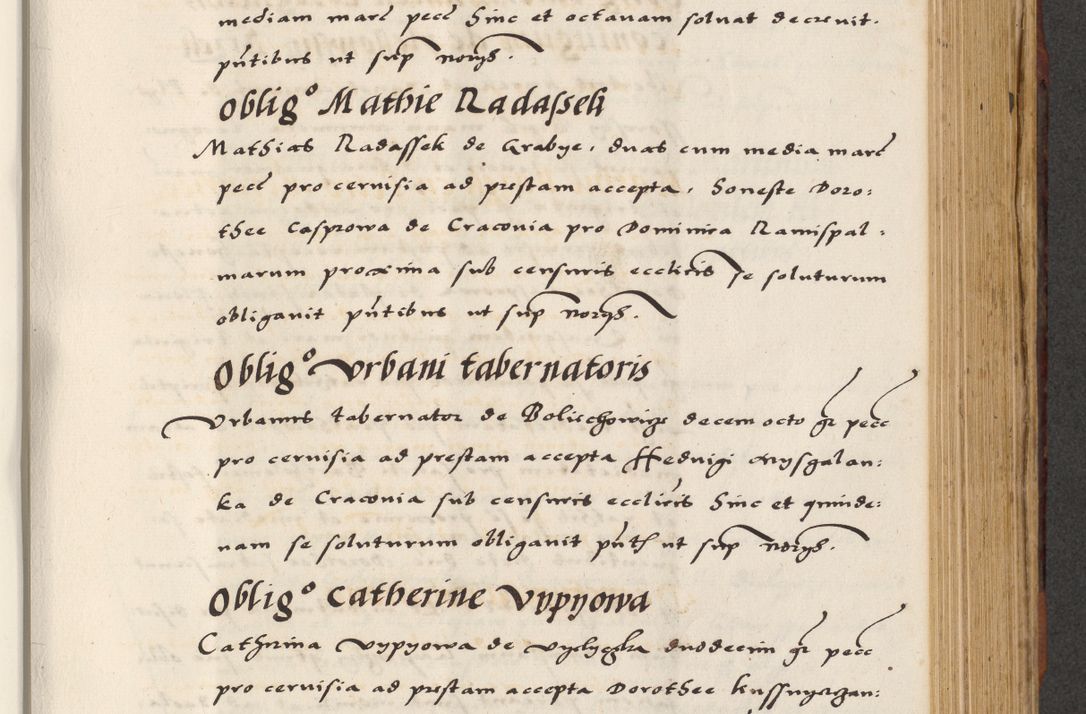 mediam marc̄ pecc̄ hinc et octauam soluat decreuit.
pn̄tibus ut sup̄ norȳs.
Obligᵒ Mathie Radassek
Mathias Radassek de Grabye, duas cum media marc̄
pecc̄ pro ceruisia ad prestam accepta, honeste Doro:
thee Casprowa de Cracouia pro Dominica Ramispal:
marum proxima sub censuris ecclicis se soluturum
obligauit pn̄tibus ut sup̄ norȳs.
Obligᵒ Vrbani tabernatoris
Vrbanus tabernator de decem octo gr̄ pecc̄
pro ceruisia ad prestam accepta Hedvigi
ka de Cracouia sub censuris ecclic̄is hinc et quinde:
nam se soluturum obligauit pn̄t ut sup̄ norȳs.
Obligᵒ Catherine Vypyowa
Cathrina Vypyowa de duodecim gr̄ pecc̄
pro ceruisia ad prestam accepta Dorothee